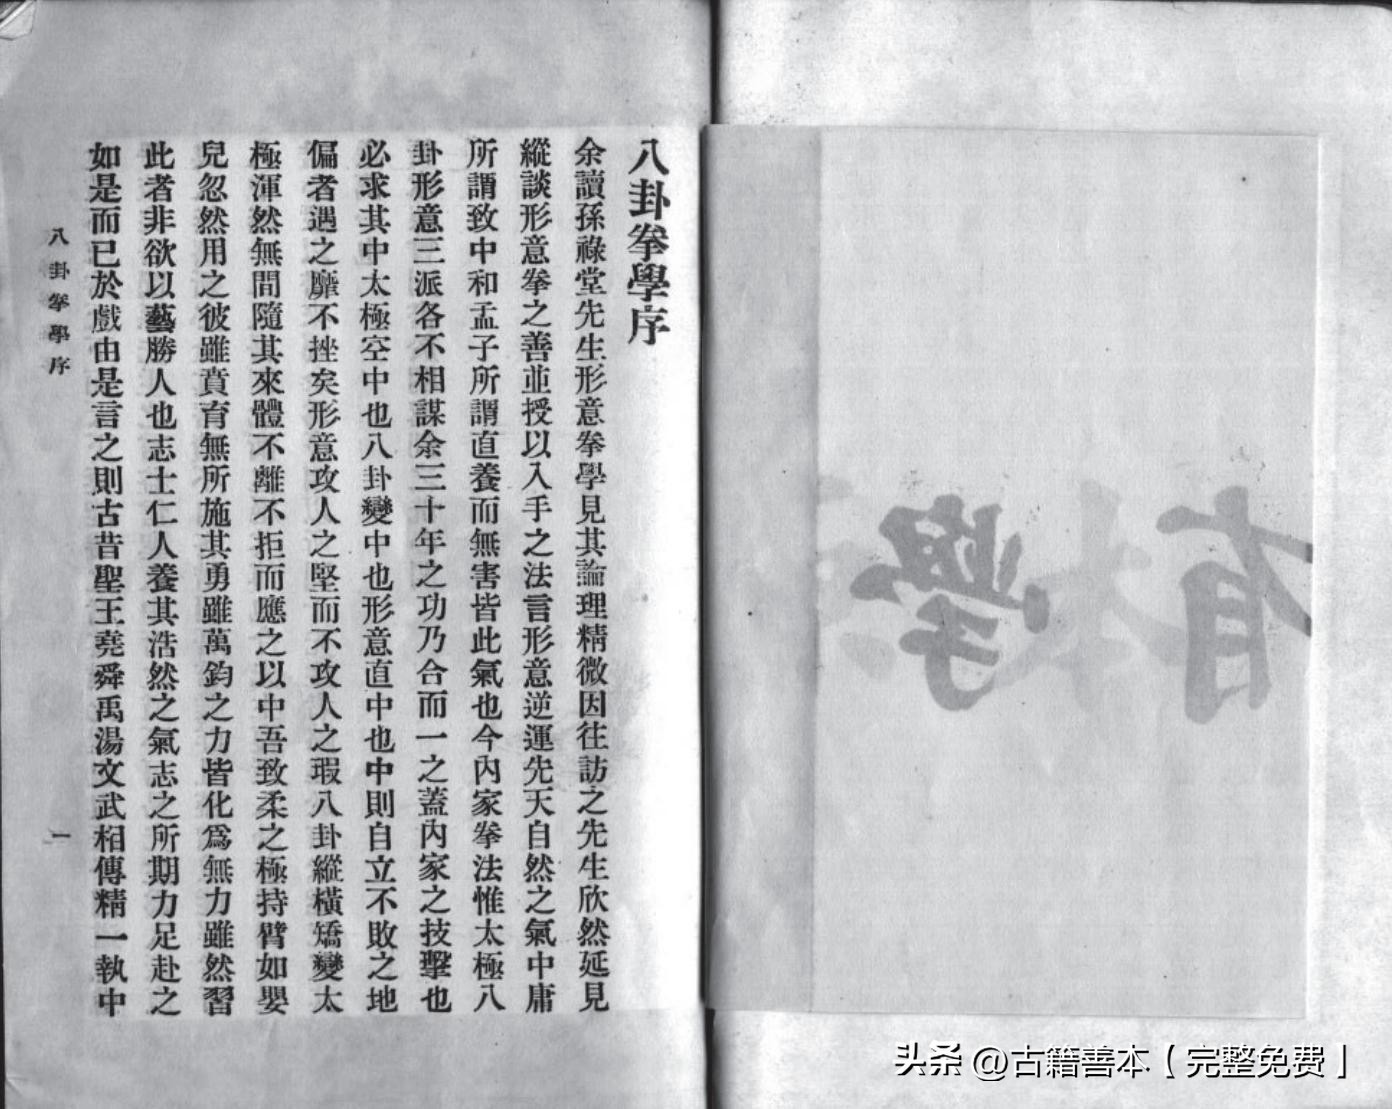 有
學
八卦拳學序
余讀孫祿堂先生形意拳學見其論理精微因往訪之先生欣然延見
縱談形意拳之善並授以入手之法言形意逆運先天自然之氣中庸
所謂致中和孟子所謂直養而無害皆此氣也今內家拳法惟太極八
卦形意三派各不相謀余三十年之功乃合而一之蓋內家之技擊也
必求其中太極空中也八卦變中也形意直中也中則自立不敗之地
偏者遇之靡不挫矣形意攻人之堅而不攻人之瑕八卦縱橫矯變太
極渾然無間隨其來體不離不拒而應之以中吾致柔之極持臂如嬰
兒忽然用之彼雖賁育無所施其勇雖萬鈞之力皆化爲無力雖然習
此者非欲以藝勝人也志士仁人養其浩然之氣志之所期力足赴之
如是而已於戲由是言之則古昔聖王堯舜禹湯文武相傳精一執中
八卦拳學序
一
头条 @古籍善本【完整免费】